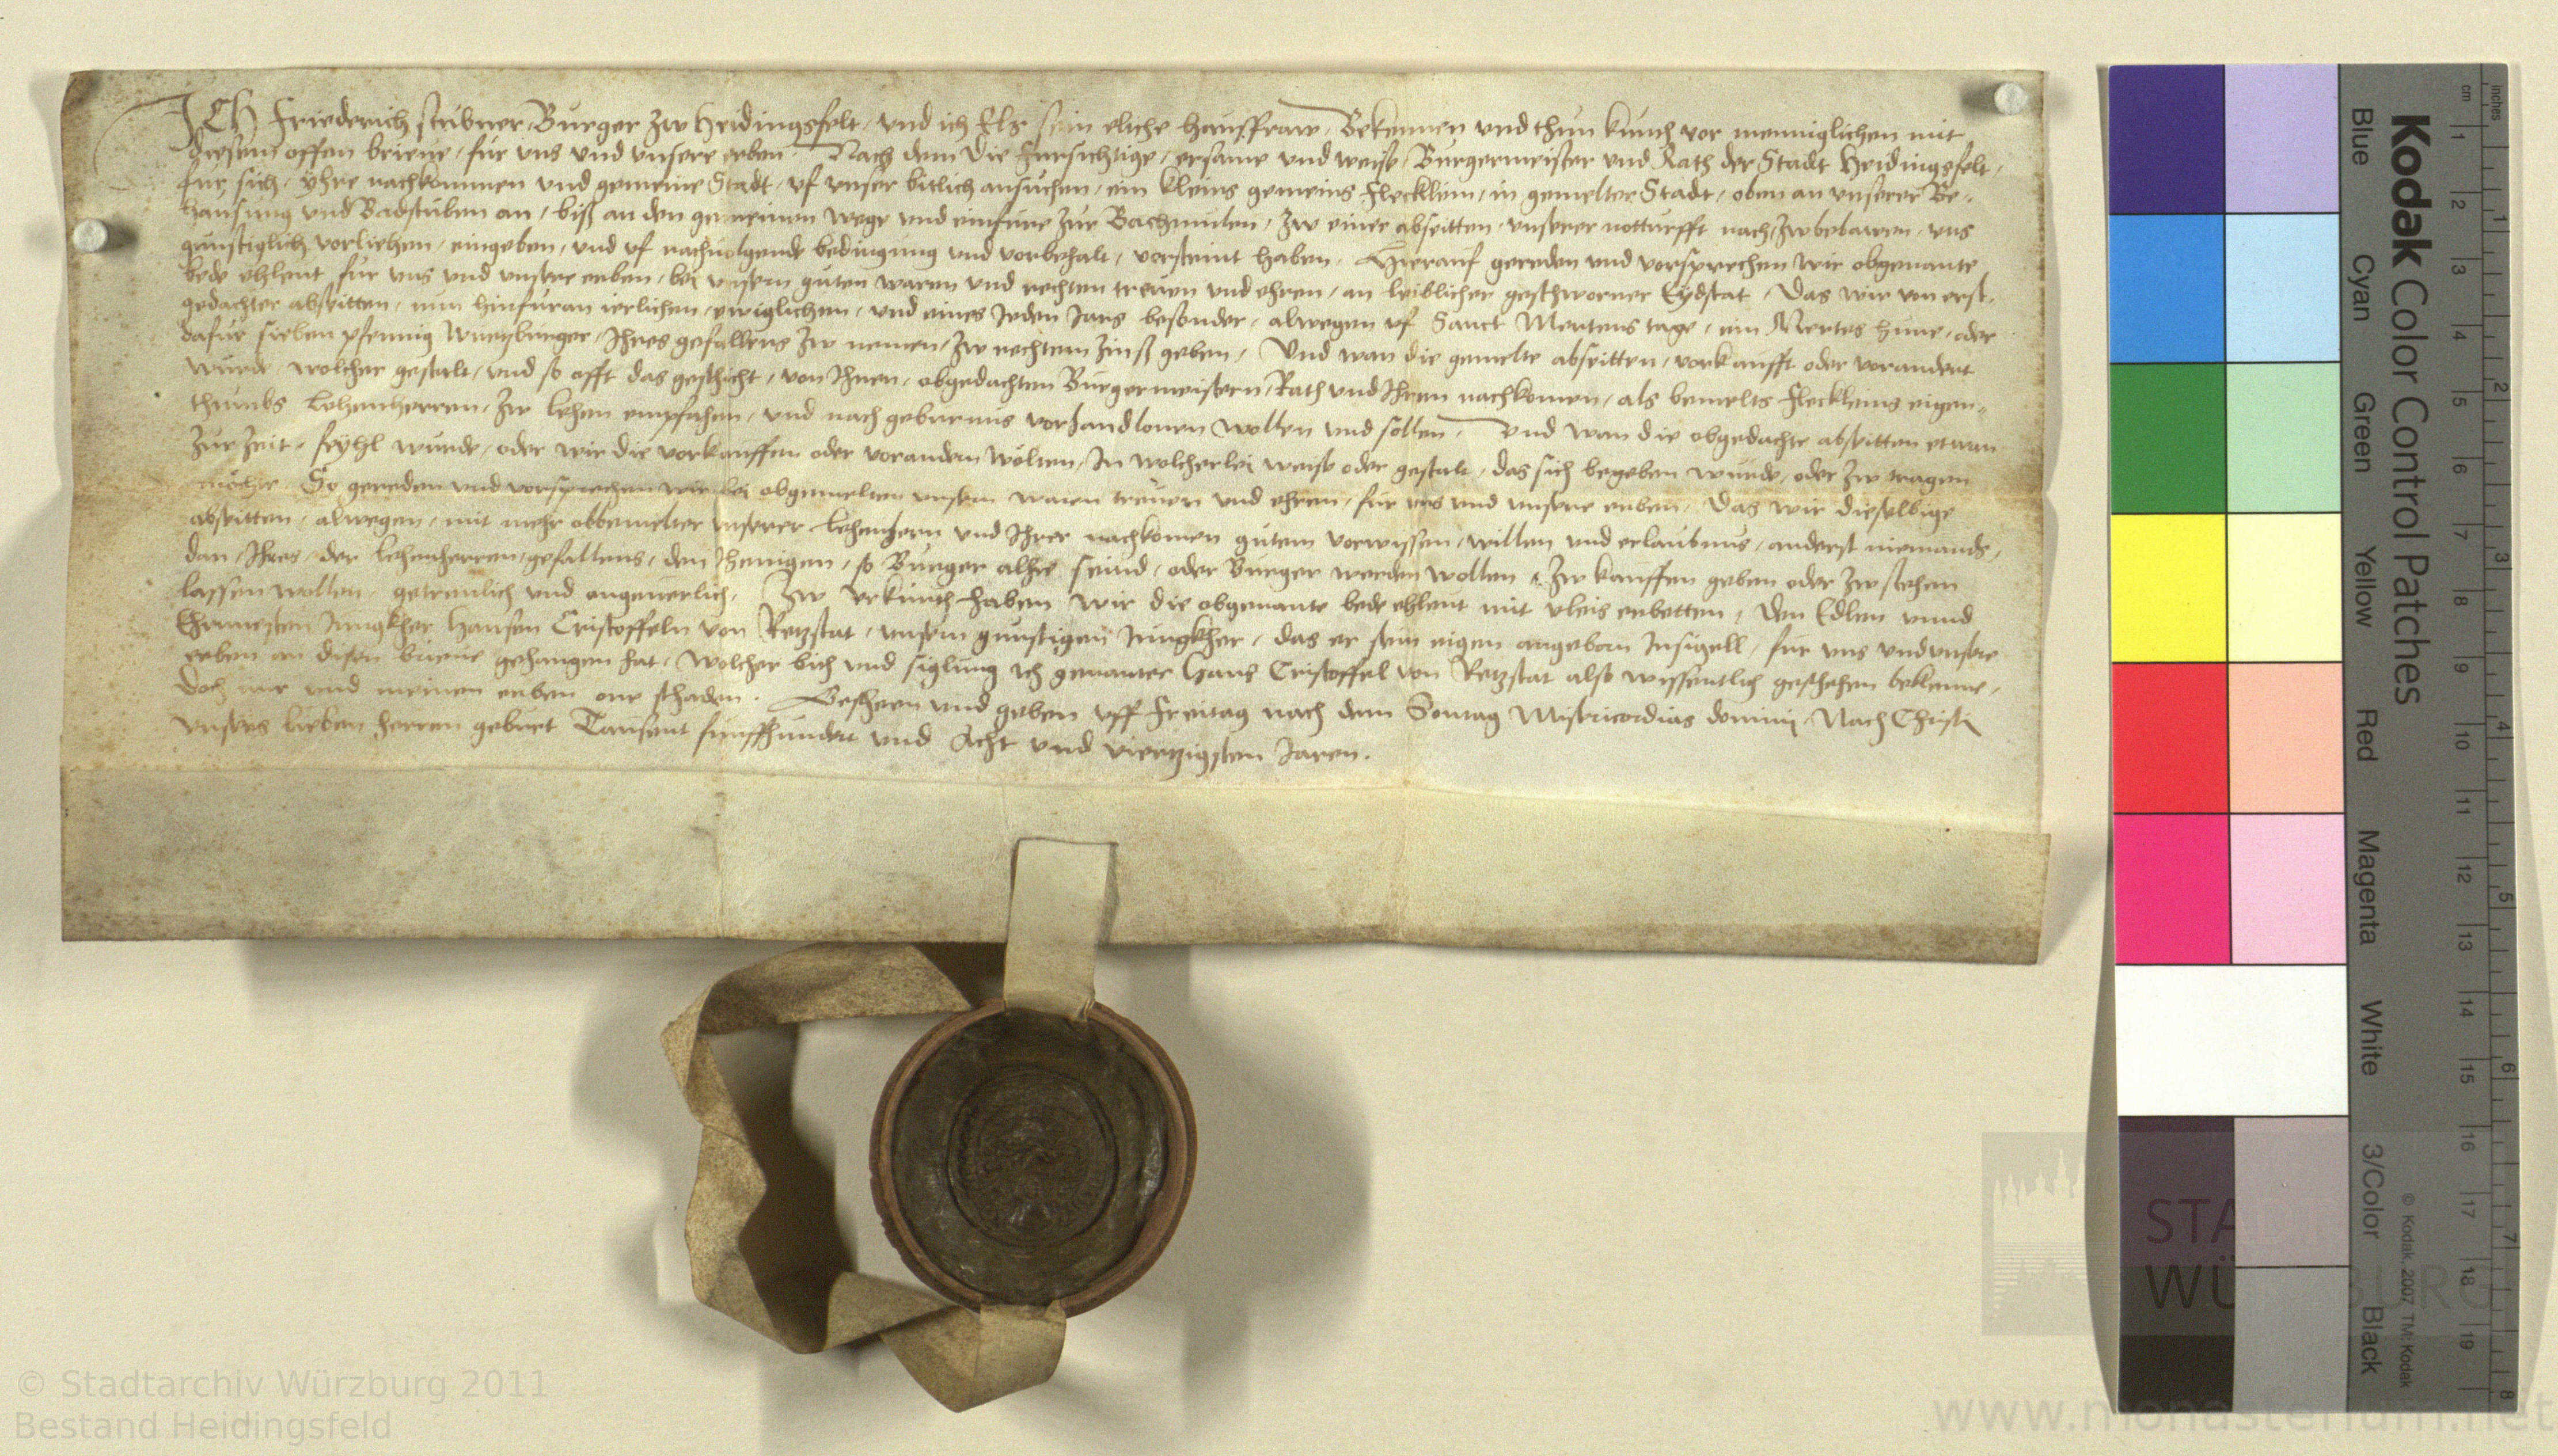 ICH Friederich stubner, Burger zw Heidingsfelt, vnd ich Els sein eliche hausfraw, Bekennen vnd thun kunth vor menniglichen mit
diesem offen brieue, fur vns vnd vnsere erben. Nach dem die Fursichtige, ersame vnd weise, Burgermeister vnd Rath der Stadt Heidingsfelt,
fur sich, yhre nachkommen vnd gemeine Stadt, vf vnser bitlich ansuchen, ein kleins gemeins Flecklein, in gemelter Stadt, oben an vnserer Be-
hausung vnd Badstuben an, biß an den gemeinen wege vnd einfure zur Bachmulen, zw einer abseitten, vnserer notturfft nach, zw bebawen, vns
gunstiglich vorliehen, eingeben, vnd vf nachuolgende bedingung vnd vorbehalt, vorsteint haben. Hierauf gereden vnd vorsprechen wir obgenante
bede ehleut fur vns vnd vnsere erben, bei vnsern guten waren vnd rechten trewen vnd ehren, an leiblicher geschworner Eydstat, Das wir von erst-
gedachter abseitten, nun hinfuran ierlichen, ewiglichen, vnd eines ieden Jars besonder, alwegen vf Sanct Mertens tage, ein Mertes hune, oder
dafur sieben pfennig Wurtzburger, Ihres gefallens zw nemen, zw rechtem zinß geben, Vnd wan die gemelte abseitten, vorkaufft oder vorandert
wurde, wolcher gestalt, vnd so offt das geschicht, von Ihnen, obgedachten Burgermeistern, Rath vnd Ihren nachkomen, als bemelts Fleckleins eigen-
thumbs Lehenherren, zw lehen empfahen, vnd nach geburnus vorhandlonen wollen vnd sollen. Vnd wan die obgedachte abseitten etwan
zur zeit, feyhl wurde, oder wir die vorkauffen oder vorandern wolten, In wolcherlei weise oder gestalt, das sich begeben wurde, oder zw tragen
mochte So gereden vnd vorsprechen wir bei obgemelten vnsern waren trewen vnd ehren, fur vns vnd vnsere erben, Das wir dieselbige
abseitten, alwegen, mit mehr obbemelter vnserer Lehenhern vnd Ihrer nachkomen gutem vorwissen, willen vnd erlaubnus, anderst niemands,
dan, Ihres, der lehenherren, gefallens, den Jhenigen, so Burger alhie seind, oder Burger werden wollen, zw kauffen geben oder zw stehen
lassen wollen, getreulich vnd ongeuerlich. Zw vrkunth haben wir die obgenante bede ehleut mit vleis erbetten, den Edlen vnnd
Ehrnuesten Jungkher Hansen Cristoffeln von Retzstat, vnsern gunstigen Jungkher, das er sein eigen angeborn Insigell, fur vns vnd vnsere
erben an disen brieue gehangen hat, Wolcher bieth vnd siglung ich genanter Hans Cristoffel von Retzstat also wissentlich geschehen bekenne,
doch mir vnd meinen erben one schaden. Geschehen vnd geben vff Freitag nach dem Sontag Misericordias domini, Nach Christi
vnsers lieben herren geburt Tausent funffhundert vnd Acht vnd viertzigsten Jaren.
Kodak Color Control Patches
Blue Cyan Green Yellow Red Magenta White 3/Color Black
© Kodak, 2007 TM: Kodak
cm 1 2 3 4 5 6 7 8 9 10 11 12 13 14 15 16 17 18 19
inches 1 2 3 4 5 6 7 8
© Stadtarchiv Würzburg 2011
Bestand Heidingsfeld
www.monasterium.net